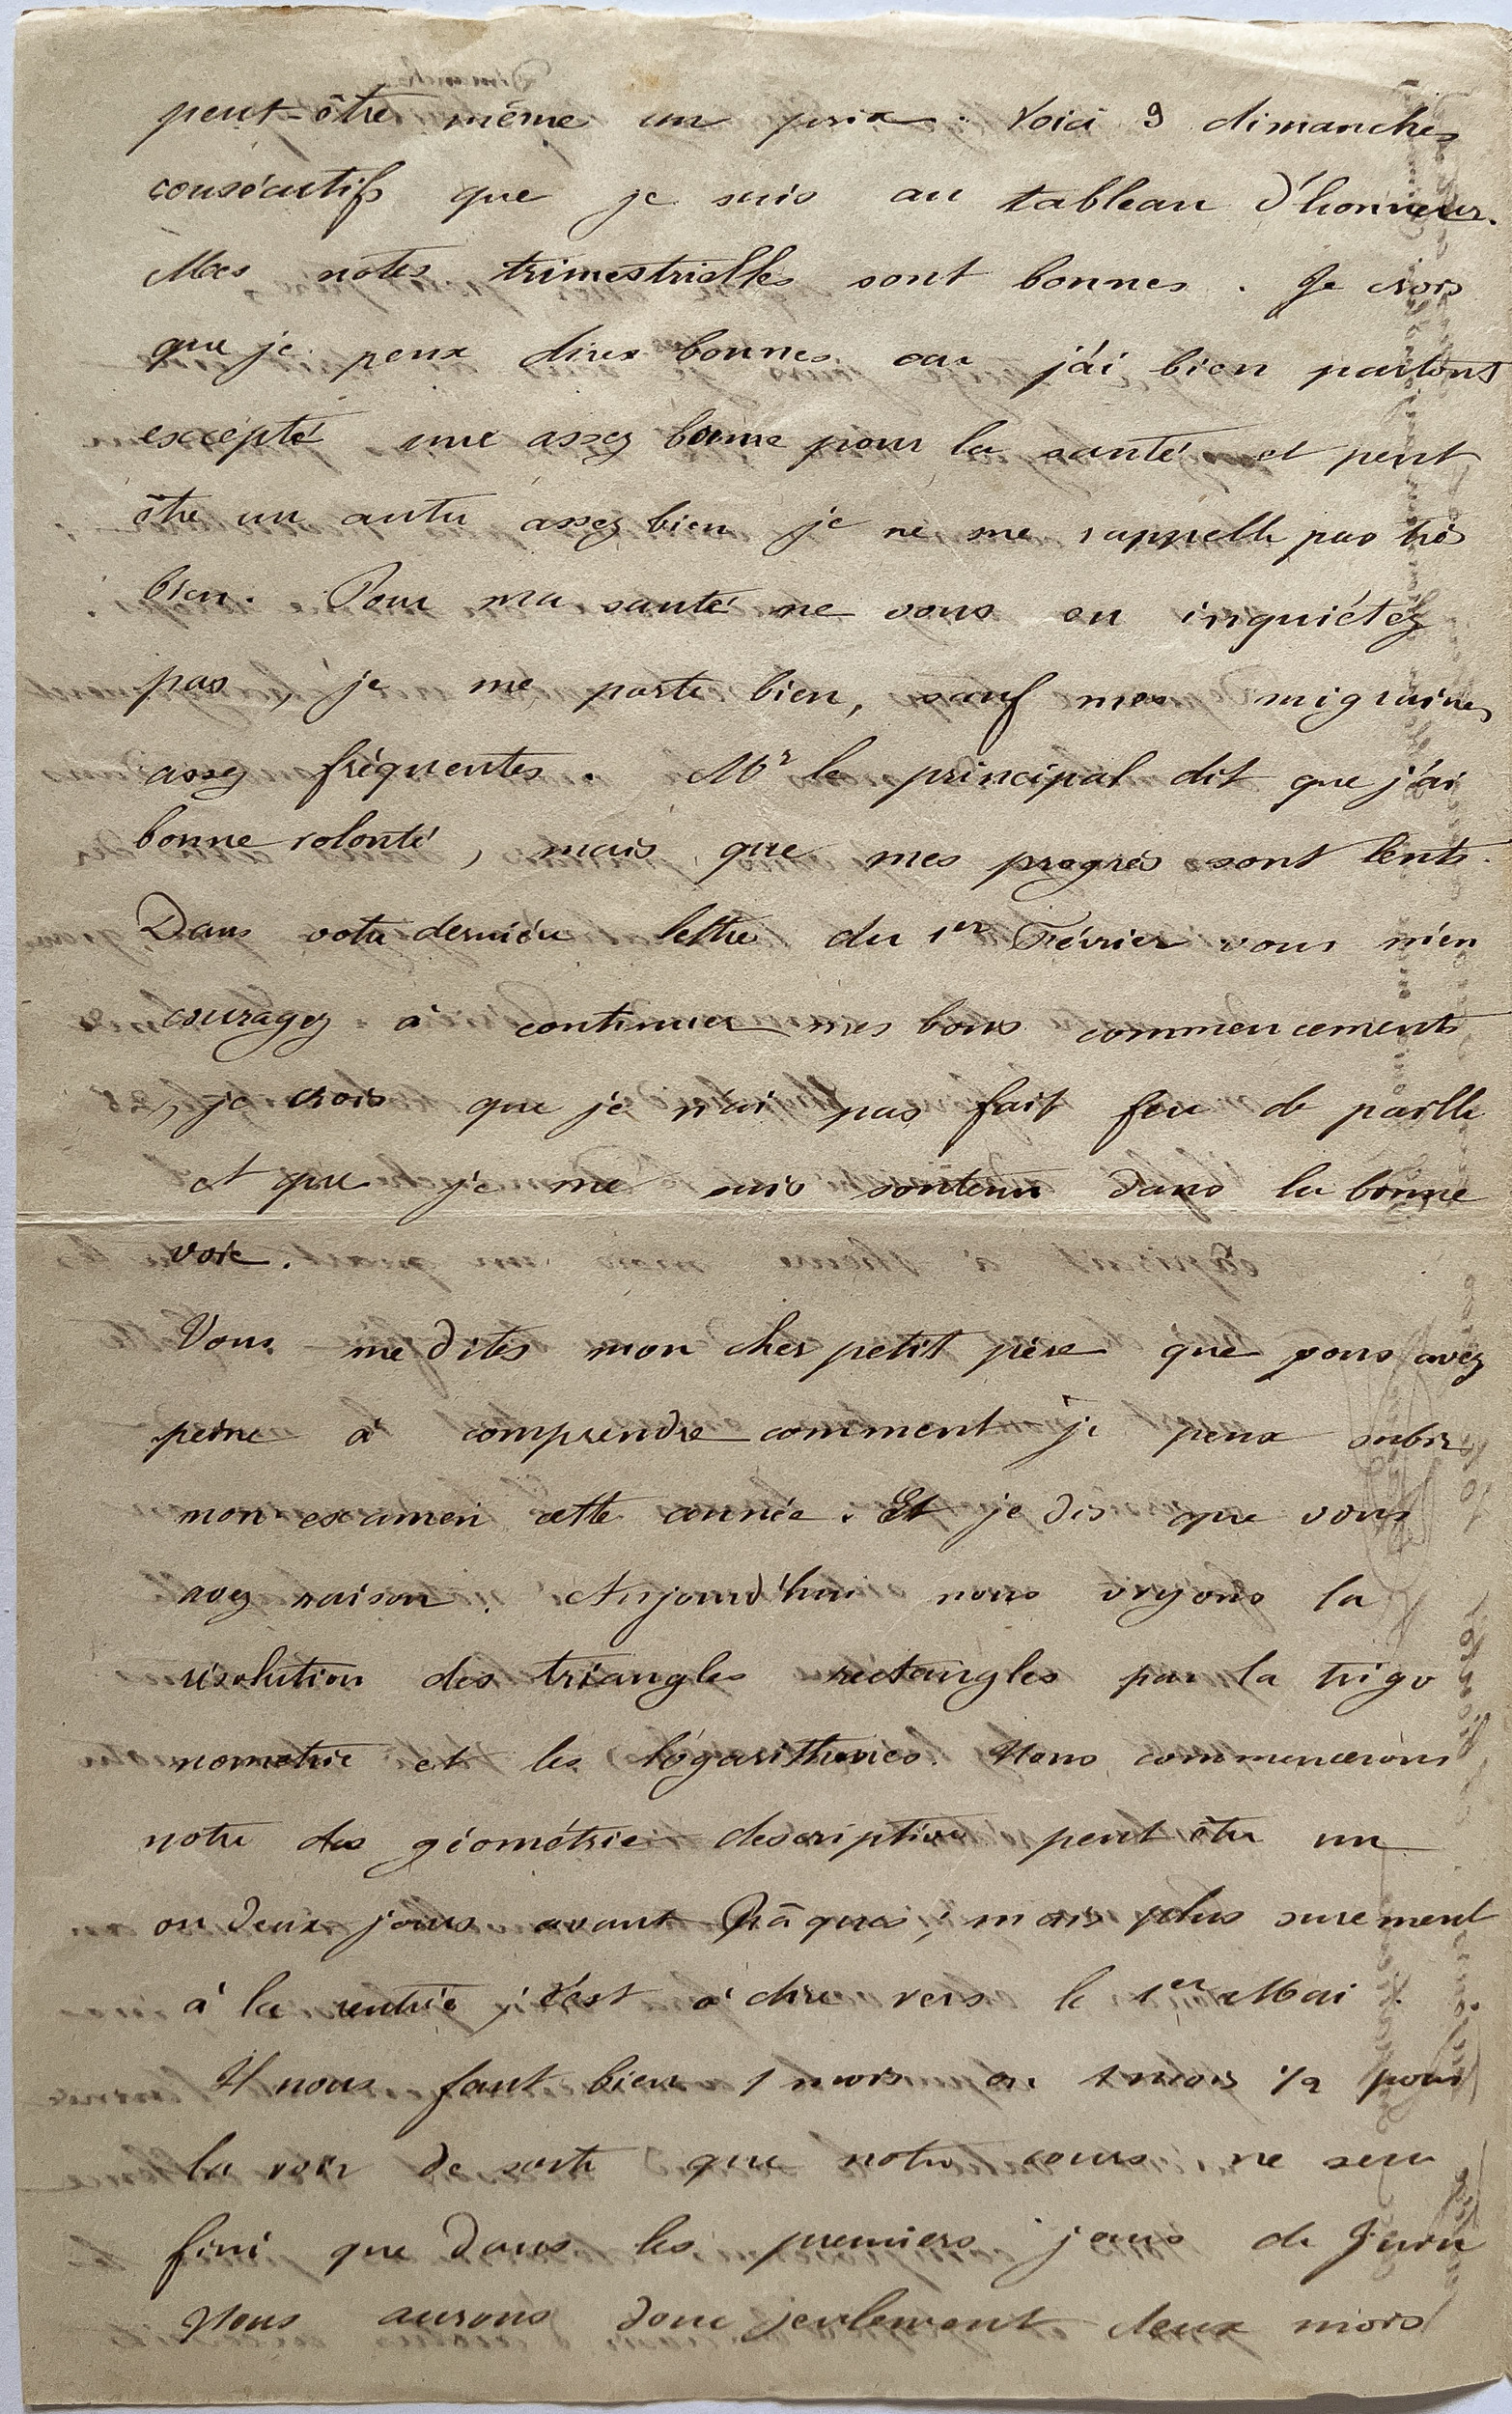 peut-être même un prix. Voici 9 dimanches
consécutifs que je suis au tableau d'honneur.
Mes notes trimestrielles sont bonnes. Je crois
que je peux dire bonnes car j'ai bien partout
excepté une assez bonne pour la santé et peut
être un autre assez bien je ne me rappelle pas très
bien. Pour ma santé ne vous en inquiétez
pas, je me porte bien, sauf mes migraines
assez fréquentes. Mr le principal dit que j'ai
bonne volonté, mais que mes progrès sont lents.
Dans votre dernière lettre du 1er Février vous m'en
couragez à continuer mes bons commencements
, je crois que je n'ai pas fait feu de paille
et que je me suis soutenu dans la bonne
voie.
Vous me dites mon cher petit père que vous avez
peine à comprendre comment je peux subir
mon examen cette année. Et je dis que vous
avez raison. Aujourd'hui nous voyons la
résolution des triangles rectangles par la trigo
nometrie et les logarithmes. Nous commencerons
notre des géométrie descriptive peut être un
ou deux jours avant Pâques; mais plus surement
à la rentrée, c'est à dire vers le 1er Mai.
Il nous faut bien 1 mois ou 1 mois 1/2 pour
la voir de sorte que notre cours ne sera
fini que dans les premiers jours de Juin
Nous aurons donc seulement deux mois